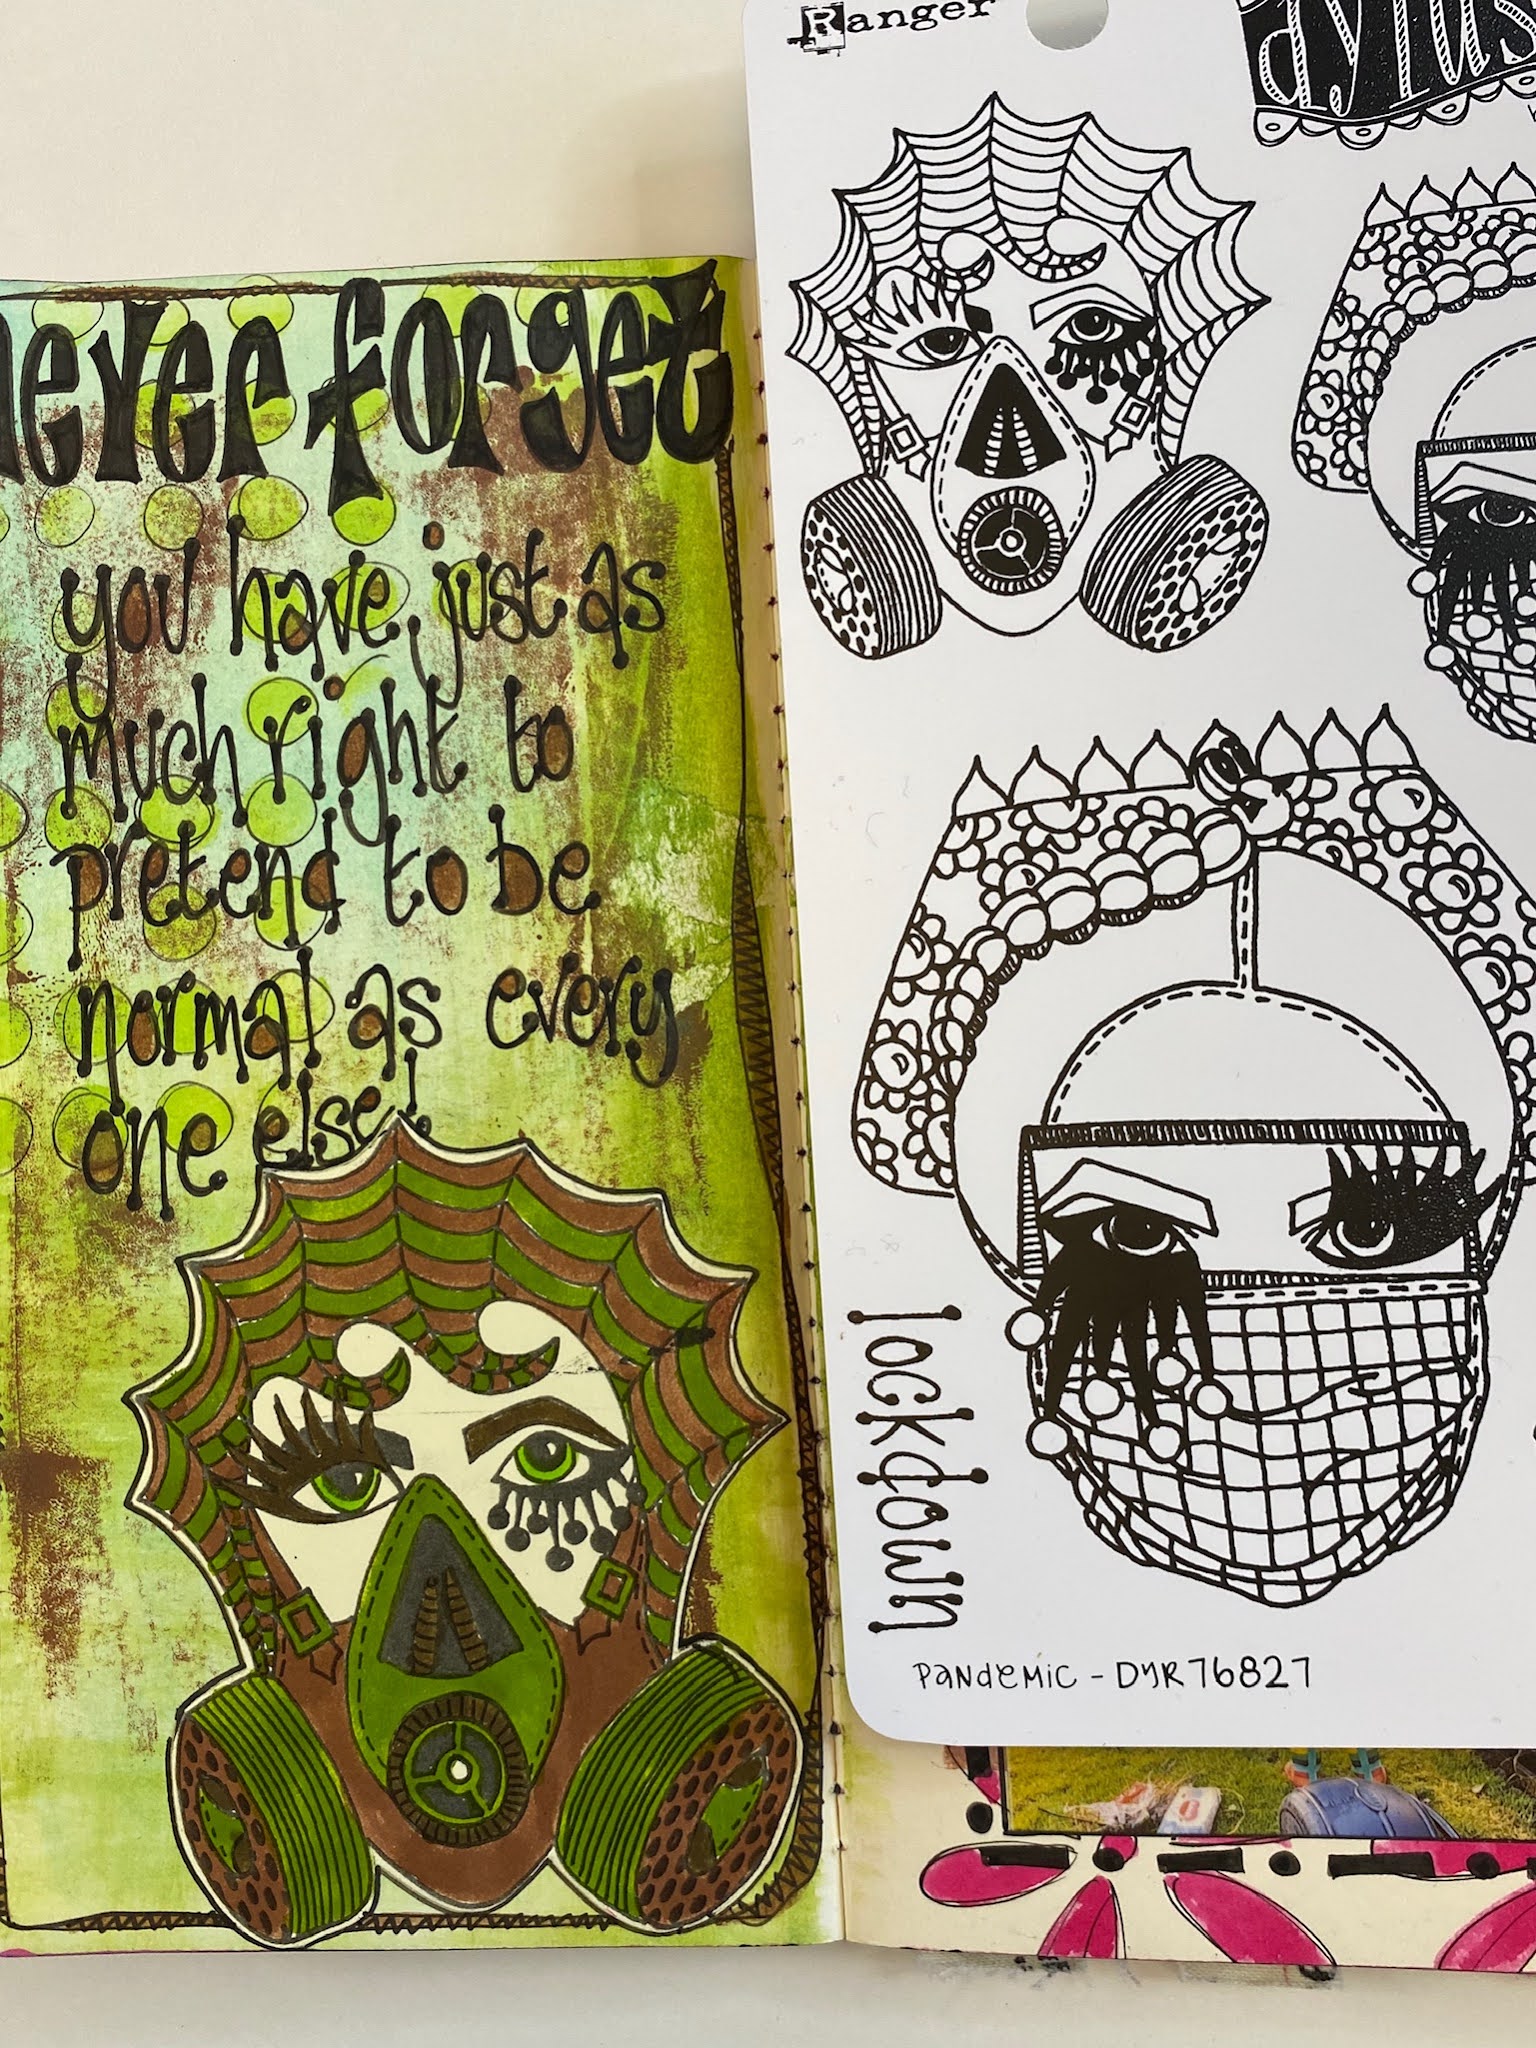 never forget
you have just as
much right to
pretend to be
normal as every
one else!
Ranger
dylus
lockdown
PANDEMIC - DYR76827